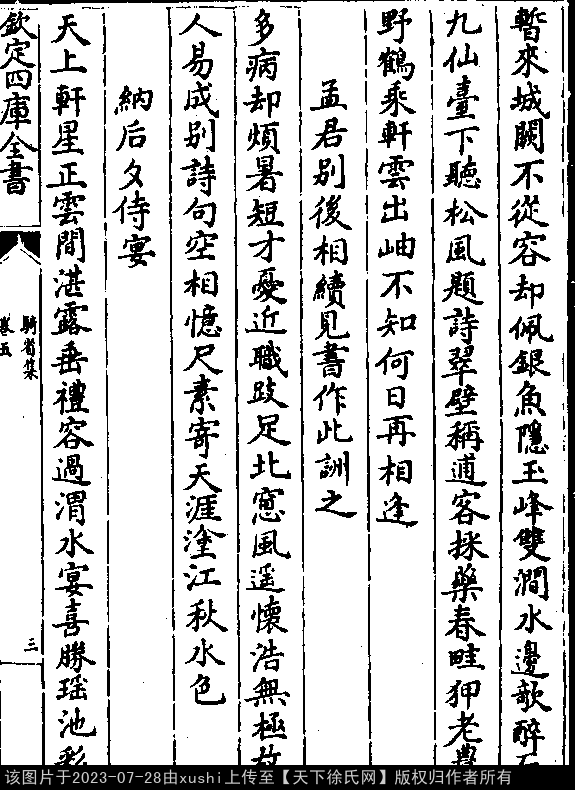 暫來城闕不從容却佩銀魚隱玉峰雙澗水邊歌醉石
九仙臺下聽松風題詩翠壁稱逋客採藥春畦狎老農
野鶴乘軒雲出岫不知何日再相逢
孟君别後相續見書作此詶之
多病却煩暑短才憂近職跂足北窓風遥懷浩無極故
人易成别詩句空相憶尺素寄天涯塗江秋水色
納后夕侍宴
天上軒星正雲間湛露垂禮容過渭水宴喜勝瑶池彩
欽定四庫全書
騎省集
卷五
三
该图片于2023-07-28由xushi上传至【天下徐氏网】版权归作者所有